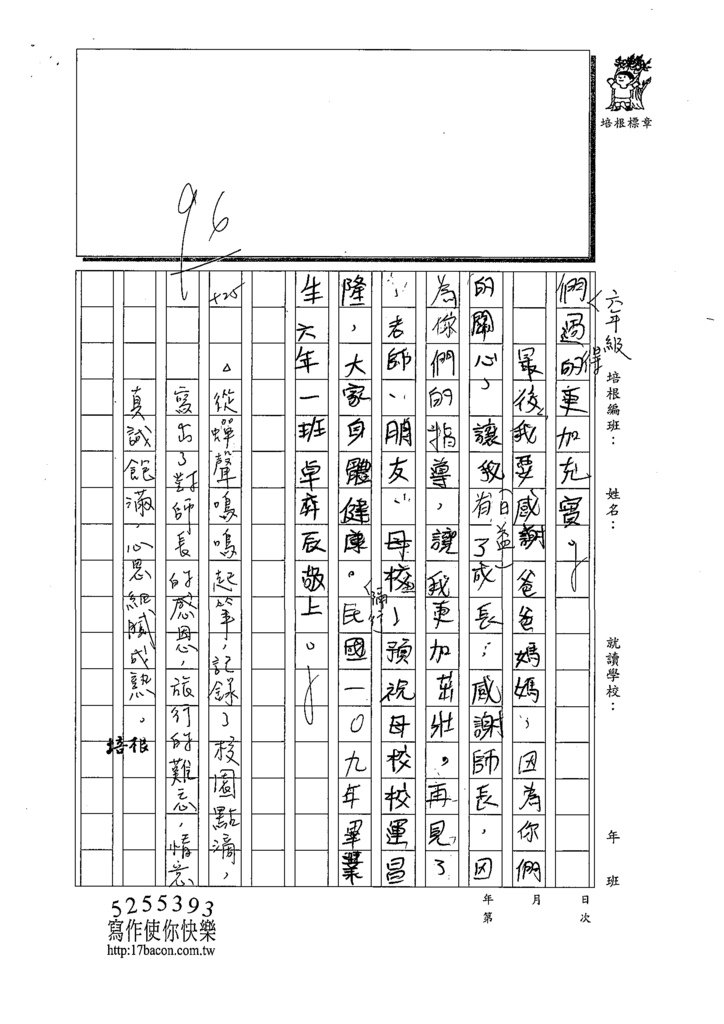 培根標章
六年級
培根編班：
姓名：
就讀學校：
年
班
們過的更加充實。
得
最後，我要感謝爸爸媽媽，因為你們
的開心，讓我有了成長；感謝師長，因
（日益）
為你們的指導，讓我更加茁壯。再見了
，老師、朋友、母校，預祝母校校運昌
隆，大家自體健康。民國一〇九年畢業
隔行
生六年一班卓弈辰敬上。
+25
96
△從蟬聲鳴鳴起筆，記錄了校園點滴，
寫出了對師長的感恩，旅行的難忘，情意
真誠飽滿，心思細膩成熟。
培根
日
次
月
年
第
5255393
寫作使你快樂
http:17bacon.com.tw